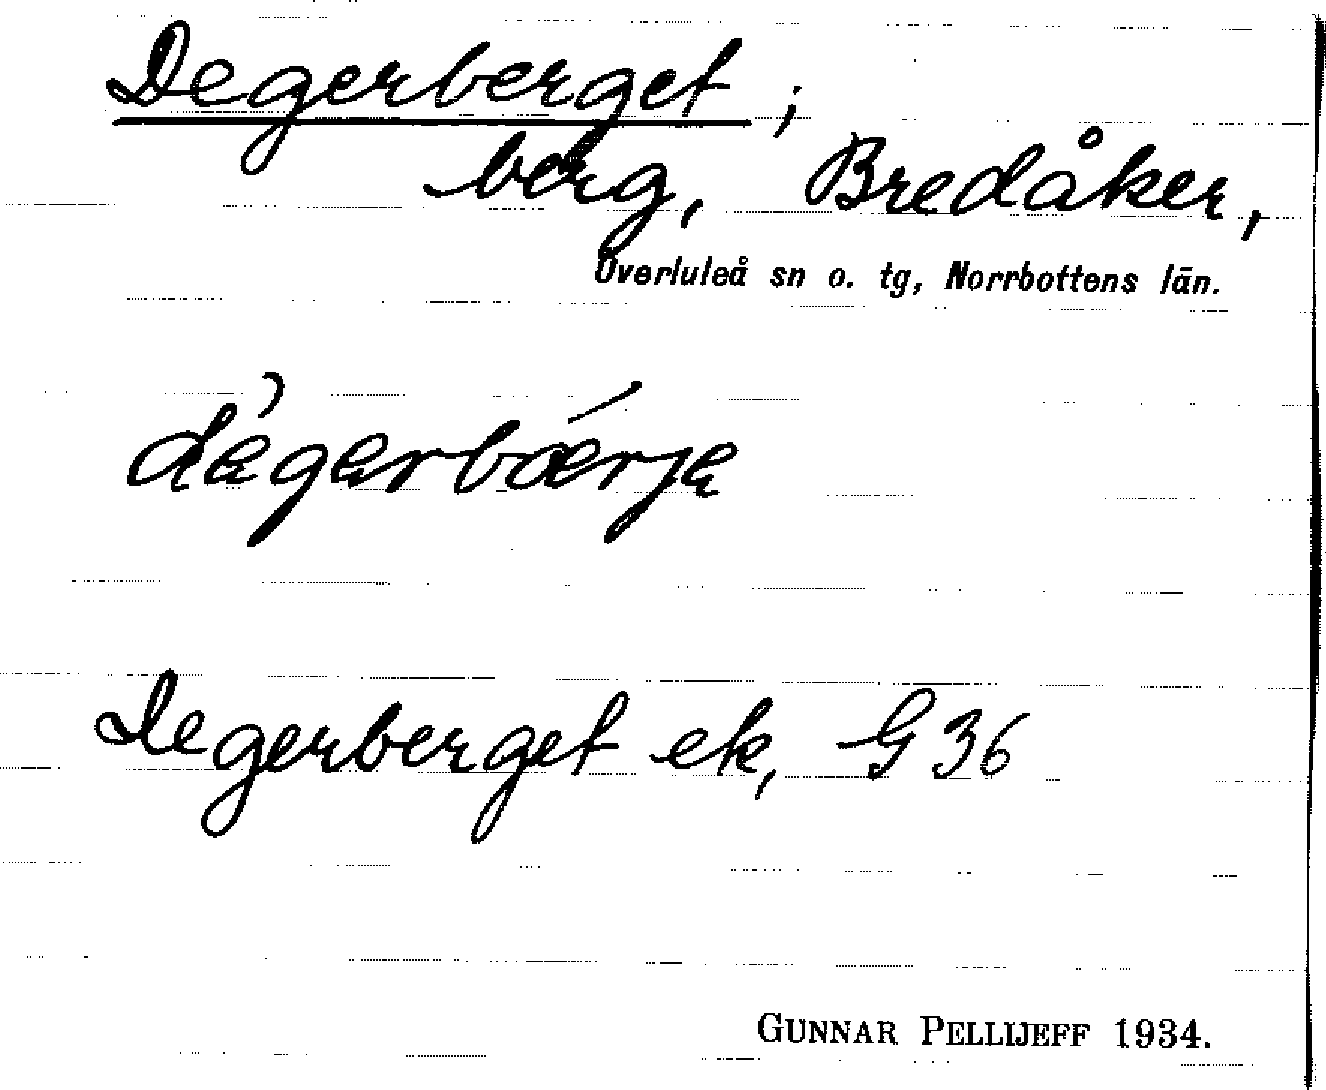 Degerberget;
berg, Bredåker,
Överluleå sn o. tg, Norrbottens län.
Degerberget ek, G 36
GUNNAR PELLIJEFF 1934.